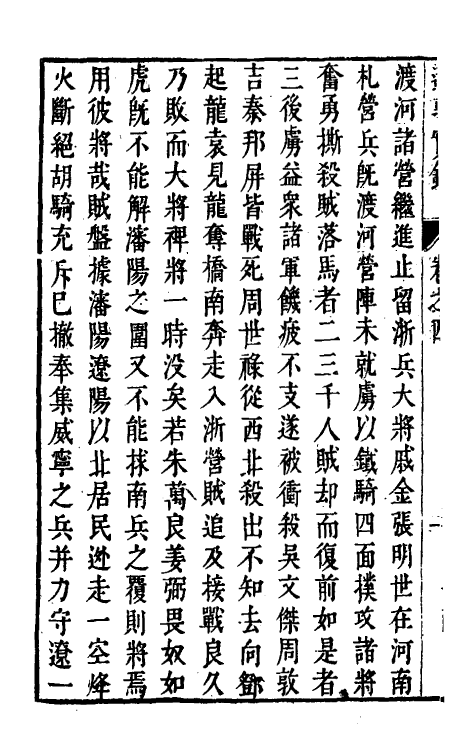 卷之四
渡河諸營繼進止留浙兵大將戚金張明世在河南
札營兵旣渡河營陣未就虜以鐵騎四面撲攻諸將
奮勇撕殺賊落馬者二三千人賊却而復前如是者
三後虜益衆諸軍饑疲不支遂被衝殺吳文傑周敦
吉秦邦屏皆戰死周世祿從西北殺出不知去向鄧
起龍袁見龍奪橋南奔走入浙營賊追及接戰良久
乃敗而大將裨將一時没矣若朱萬良姜弼畏奴如
虎旣不能解瀋陽之圍又不能抹南兵之覆則將焉
用彼將哉賊盤據瀋陽遼陽以北居民迯走一空烽
火斷絕胡騎充斥已撤奉集威寧之兵并力守遼一